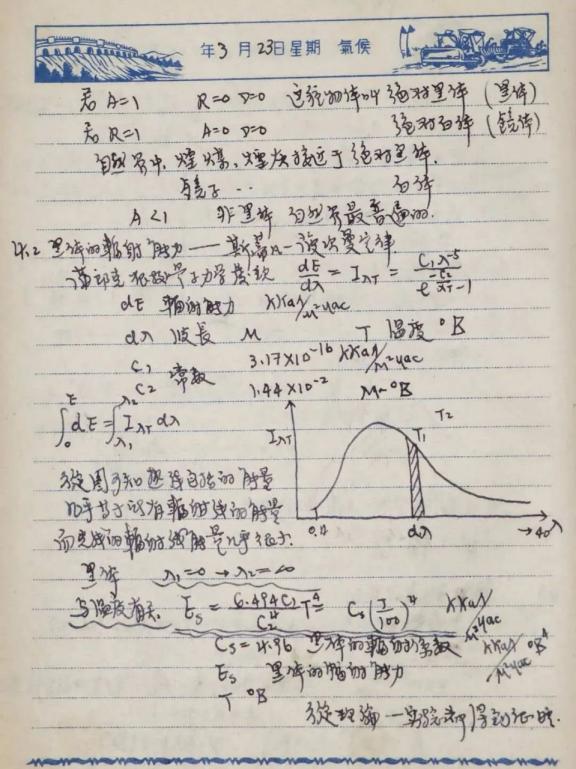 年3月23日星期 氣候
若 A=1 R=0 D=0 这种物体叫 绝对黑体 (黑体)
若 R=1 A=0 D=0 绝对白体 (镜体)
自然界中, 煙煤、煙灰接近于绝对黑体.
镜子 ·· 白体
A<1 非黑体 自然界最普遍的.
4.2 黑体的輻射能力——斯蒂夫—波次曼定律
蒲郎克 根据量子力学 dE/dλ = I_λT = C₁λ⁻⁵/(e^(C₂/λT)-1)
dE 輻射能力 KKaл/м²чac
dλ 波長 M T 温度 °B
C₁ 常数 3.17×10⁻¹⁶ KKaл/м²чac
C₂ 1.44×10⁻² M-°B
∫₀ᴱ dE = ∫_λ₁^λ₂ I_λT dλ
I_λT T₂ T₁
0.4 dλ →40λ
從圖可知 的能量
几乎等于所有輻射线的能量
而光线的輻射线能量几乎很小.
黑体 λ₁=0 → λ₂=∞
与温度有关. E_S = 6.494C₁/C₂⁴ T⁴ = C_s(T/100)⁴ KKaл/м²чac
C_S=4.96 黑体的輻射係数 KKaл/м²чac °B⁴
E_S 黑体的輻射能力
T °B
從理論—实验都得到证明.